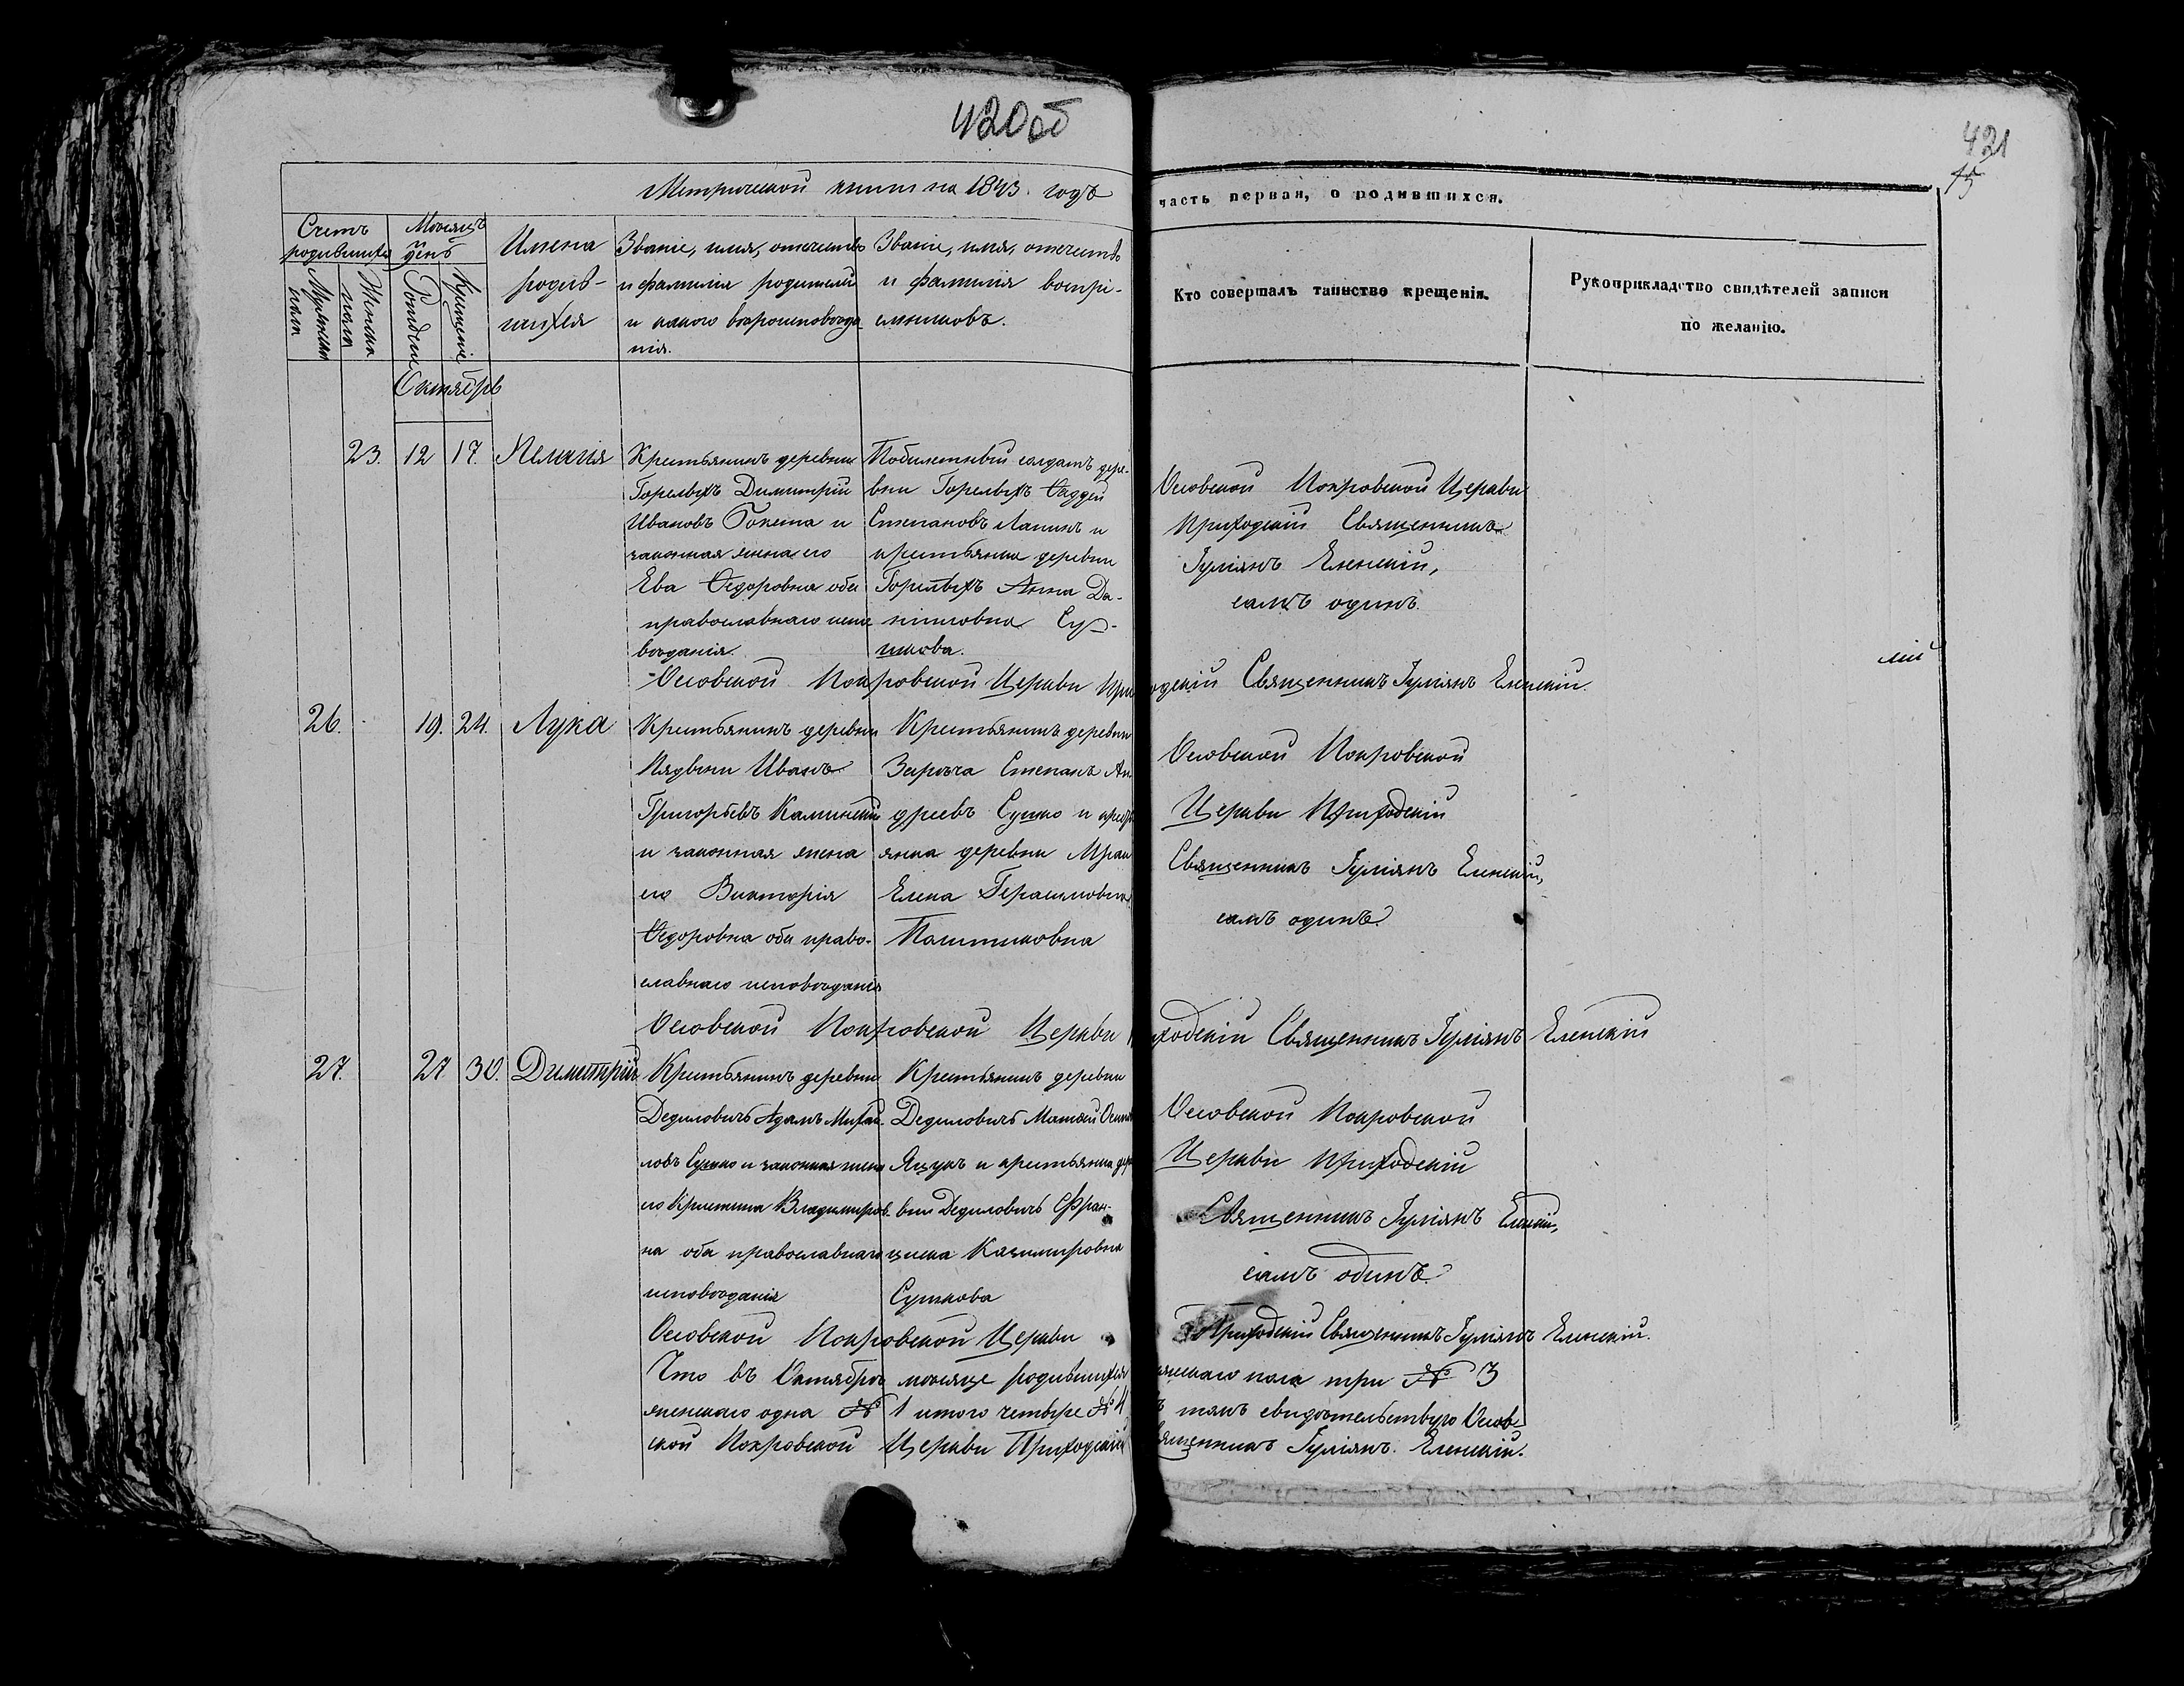 420 об
421
15
Метрической книги на 1843 годъ
часть первая, о родившихся.
Счетъ родившихся
Мѣсяцъ и день
Имена родив-
шихся
Званіе, имя, отечество
и фамилія родителей
и какого вѣроисповѣда
нія.
Званіе, имя, отечество
и фамилія воспрі-
емниковъ.
Кто совершалъ таинство крещенія.
Рукоприкладство свидѣтелей записи
по желанію.
Мужеска пола
Женска пола
Рожденіе
Крещеніе
Октябрь
23. 12 17. Пелагія
Крестьянинъ деревни
Горелыхъ Димитрій
Ивановъ и
законная жена его
Ева Ѳедоровна оба
православнаго испо
вѣданія.
солдатъ дере-
вни Горелыхъ Ѳаддей
Степановъ Лапинъ и
крестьянка деревни
Горелыхъ Анна Да-
ниловна Суш-
кова.
Осовской Покровской Церкви
Приходскій Священникъ
Іуліянъ Еленскій,
самъ одинъ.
Осовской Покровской Церкви Приходскій Священникъ Іуліянъ Еленскій.
26. 19. 24. Лука
Крестьянинъ деревни
Иванъ
Григорьевъ Калинскій
и законная жена
его Викторія
Ѳедоровна оба право-
славнаго исповѣданія
Крестьянинъ деревни
Зарѣча Степанъ Ан
дреевъ Сушко и крестья
янка деревни
Елена Герасимовна
Осовской Покровской
Церкви Приходскій
Священникъ Іуліянъ Еленскій,
самъ одинъ.
Осовской Покровской Церкви Приходскій Священникъ Іуліянъ Еленскій
27. 27 30. Димитрій
Крестьянинъ деревни
Дедиловичъ Адамъ Михай-
ловъ Сушко и законная жена
его Кристина Владимиров-
на оба православнаго
исповѣданія
Крестьянинъ деревни
Дедиловичъ Матѳей
Яцукъ и крестьянка дере
вни Дедиловичъ Фран-
циска Казимировна
Сушкова
Осовской Покровской
Церкви Приходскій
Священникъ Іуліянъ Еленскій,
самъ одинъ.
Осовской Покровской Церкви Приходскій Священникъ Іуліянъ Еленскій.
Что въ Октябрѣ мѣсяце родившихся мужескаго пола три № 3
женскаго одна № 1 итого четыре № 4 въ томъ свидѣтельствую Осов
ской Покровской Церкви Приходскій Священникъ Іуліянъ Еленскій.